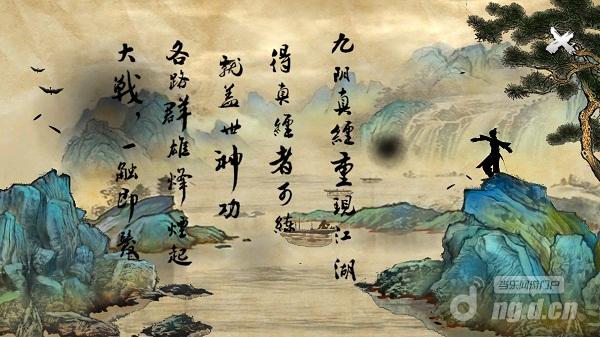 九阴真經重現江湖
得真經者可練
就盖世神功
各路群雄烽煙起
大戰，一触即發
当乐网游门户
d.ng.d.cn